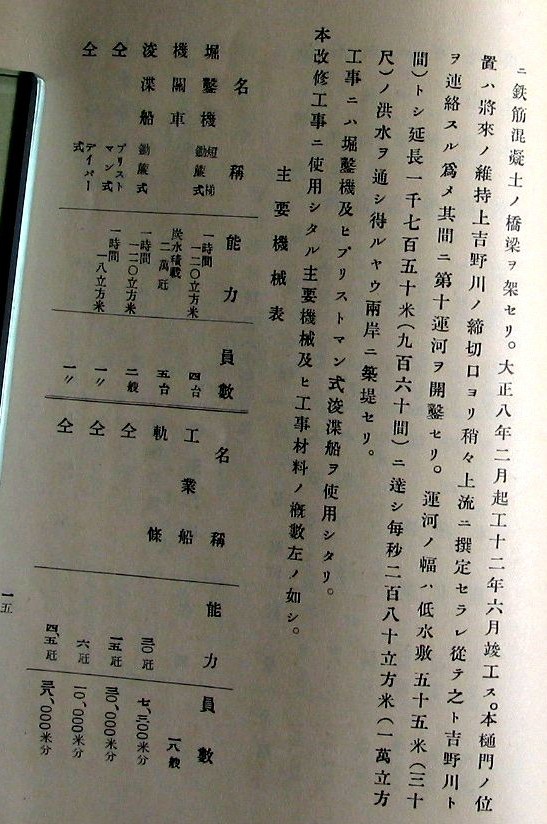 ニ鉄筋混凝土ノ橋梁ヲ架セリ。大正八年二月起工十二年六月竣工ス。本樋門ノ位
置ハ將來ノ維持上吉野川ノ締切口ヨリ稍々上流ニ撰定セラレ從テ之ト吉野川ト
ヲ連絡スル爲メ其間ニ第十運河ヲ開鑿セリ。運河ノ幅ハ低水敷五十五米(三十
間)トシ延長一千七百五十米(九百六十間)ニ達シ毎秒二百八十立方米(一萬立方
尺)ノ洪水ヲ通シ得ルヤウ兩岸ニ築堤セリ。
工事ニハ堀鑿機及ヒプリストマン式浚渫船ヲ使用シタリ。
本改修工事ニ使用シタル主要機械及ヒ工事材料ノ概數左ノ如シ。
主要機械表
名稱 能力 員數
堀鑿機 短梯鋤簾式 一時間 一二〇立方米 四台
機關車 炭水積載 二萬瓩 五台
浚渫船 鋤簾式 一時間 一二〇立方米 二艘
仝 プリストマン式 一時間 一八立方米 一〃
仝 デイパー式 一〃
名稱 能力 員數
工業船 一八艘
軌條 三〇瓩 七、三〇〇米分
仝 一五瓩 三〇、〇〇〇米分
仝 六瓩 一〇、〇〇〇米分
仝 四、五瓩 三八、〇〇〇米分
一五